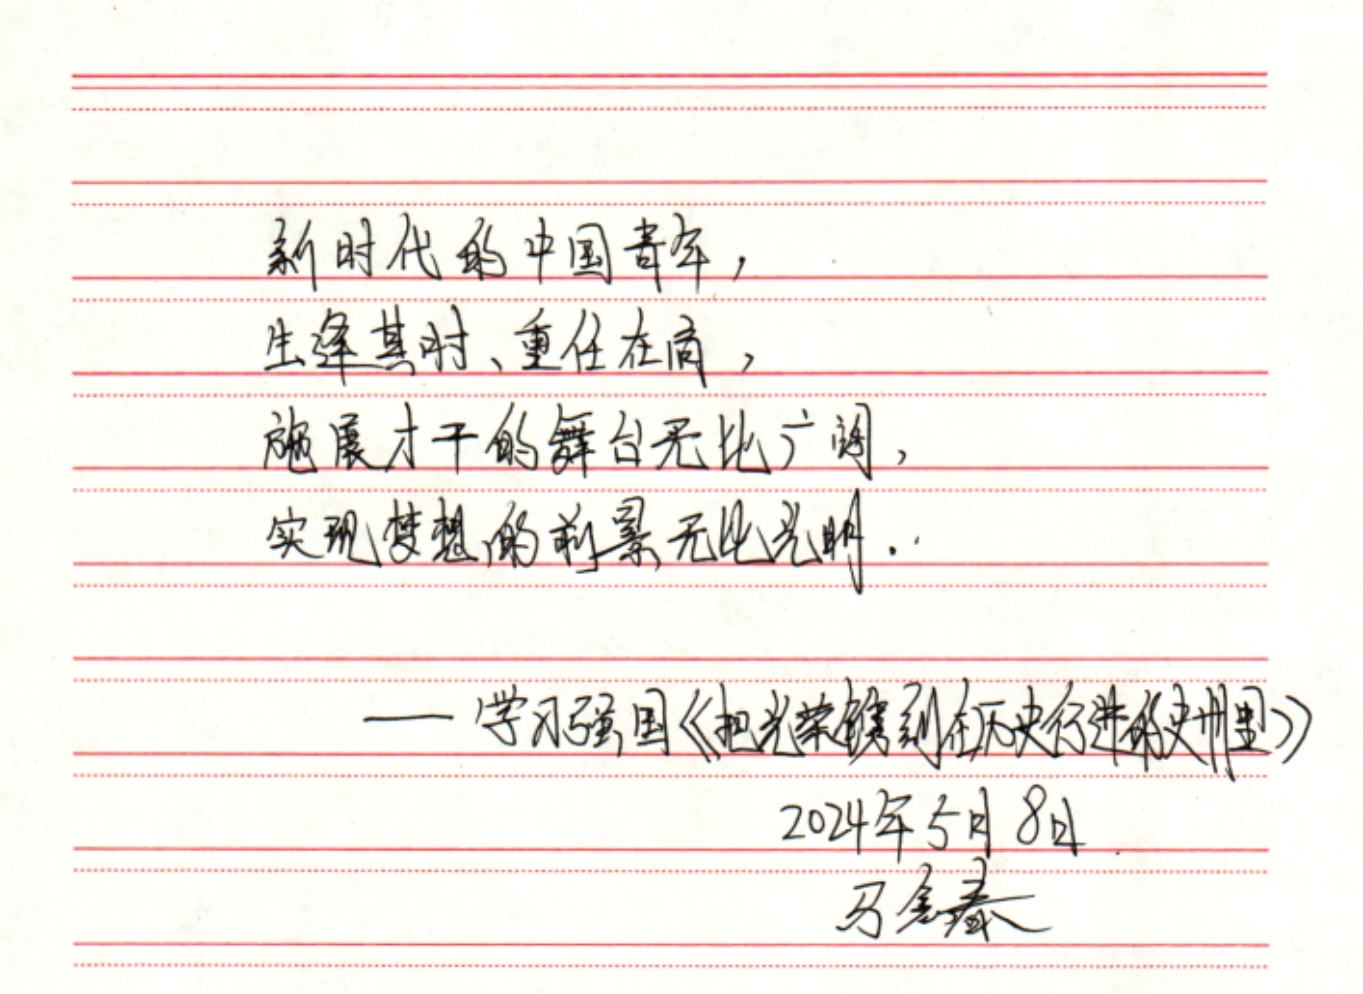 新时代的中国青年，
生逢其时、重任在肩，
施展才干的舞台无比广阔，
实现梦想的前景无比光明。
——学习强国《把光荣镌刻在历史行进的史册里》
2024年5月8日
马金春